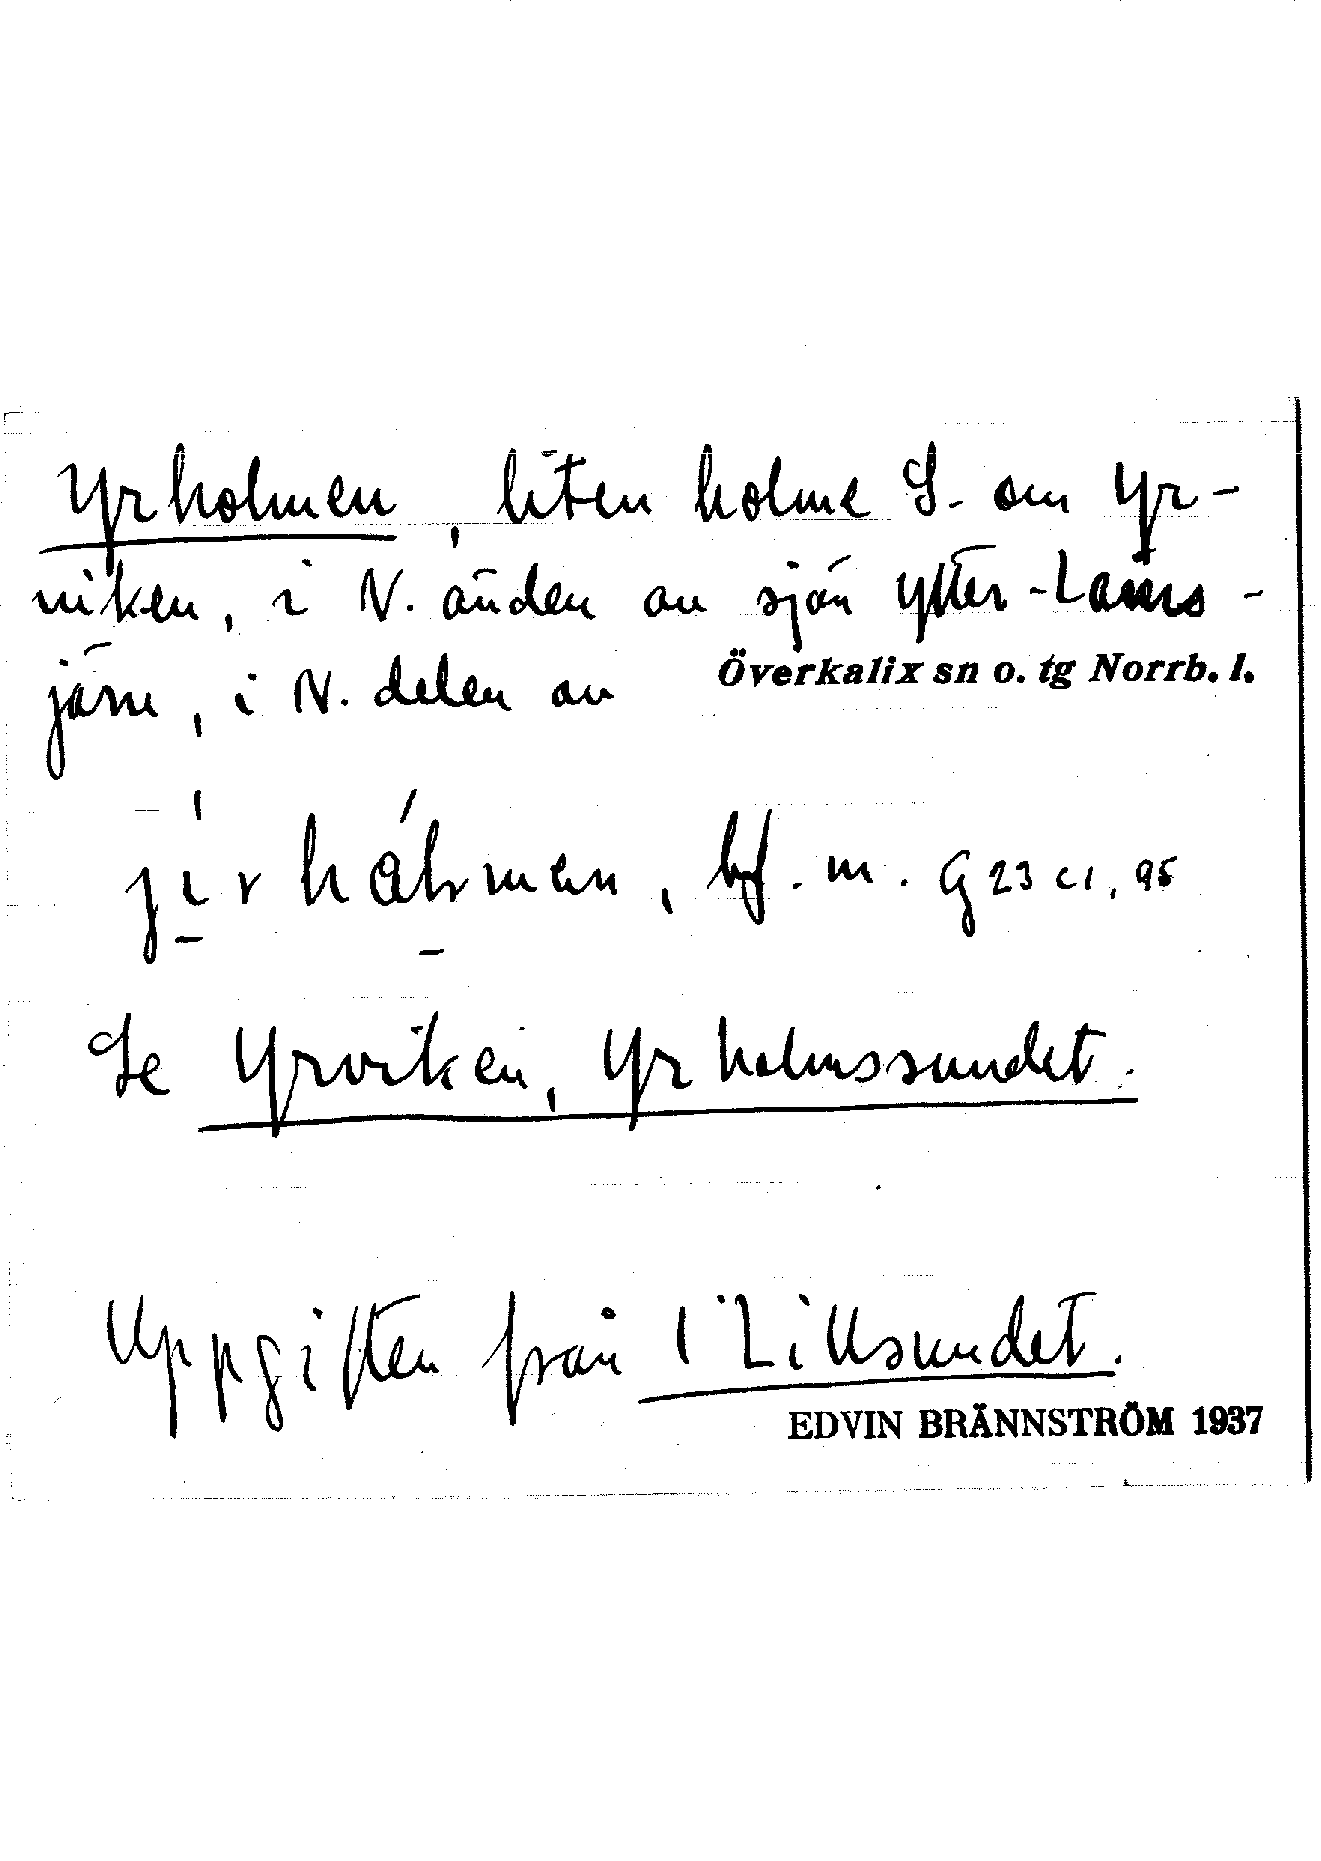 Yrholmen, liten holme S. om Yr-
viken, i N. änden av sjön Ytter-Lans-
järv, i N. delen av Överkalix sn o. tg Norrb. l.
bf. m. G 23 c1, 95
Se Yrviken, Yrholmssundet.
Uppgiften från 1 Lillsundet.
EDVIN BRÄNNSTRÖM 1937